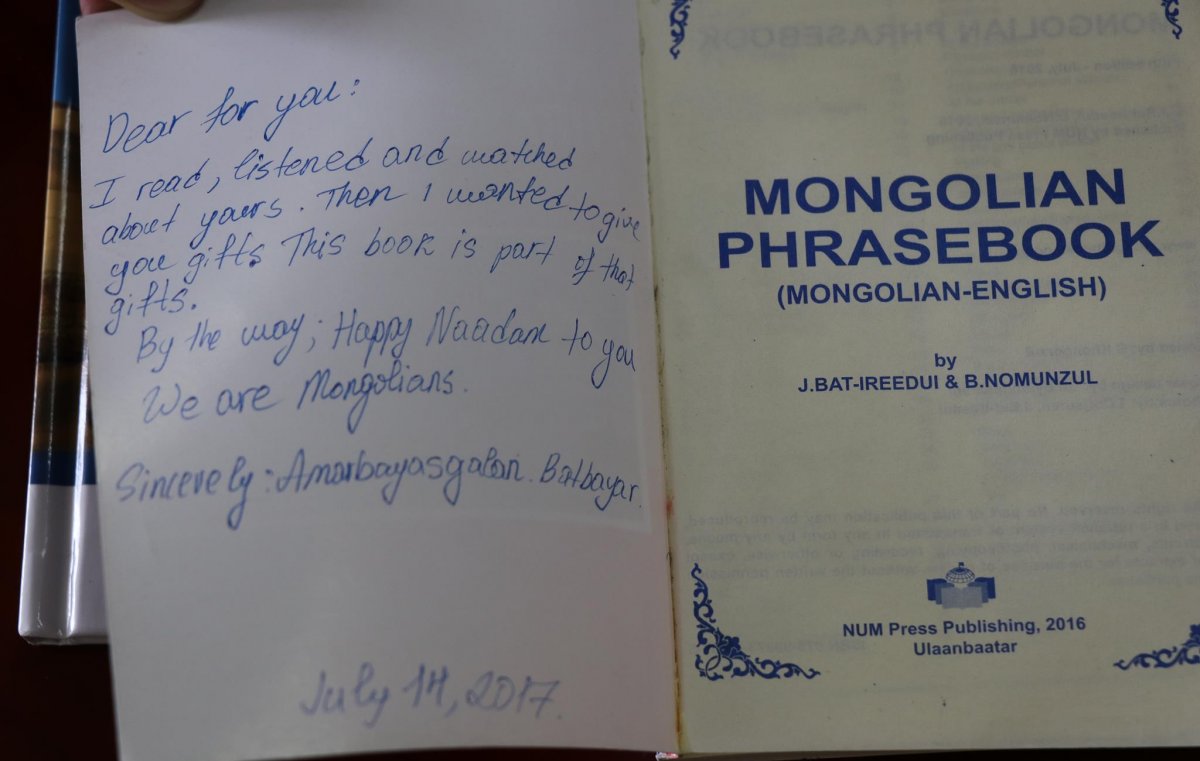 Dear for you:
I read, listened and watched
about yours. Then I wanted to give
you gifts. This book is part of that
gifts.
By the way; Happy Naadam to you
We are Mongolians.
Sincerely: Amarbayasgalan. Batbayar.
July 14, 2017.
MONGOLIAN
PHRASEBOOK
(MONGOLIAN-ENGLISH)
by
J.BAT-IREEDUI & B.NOMUNZUL
NUM Press Publishing, 2016
Ulaanbaatar